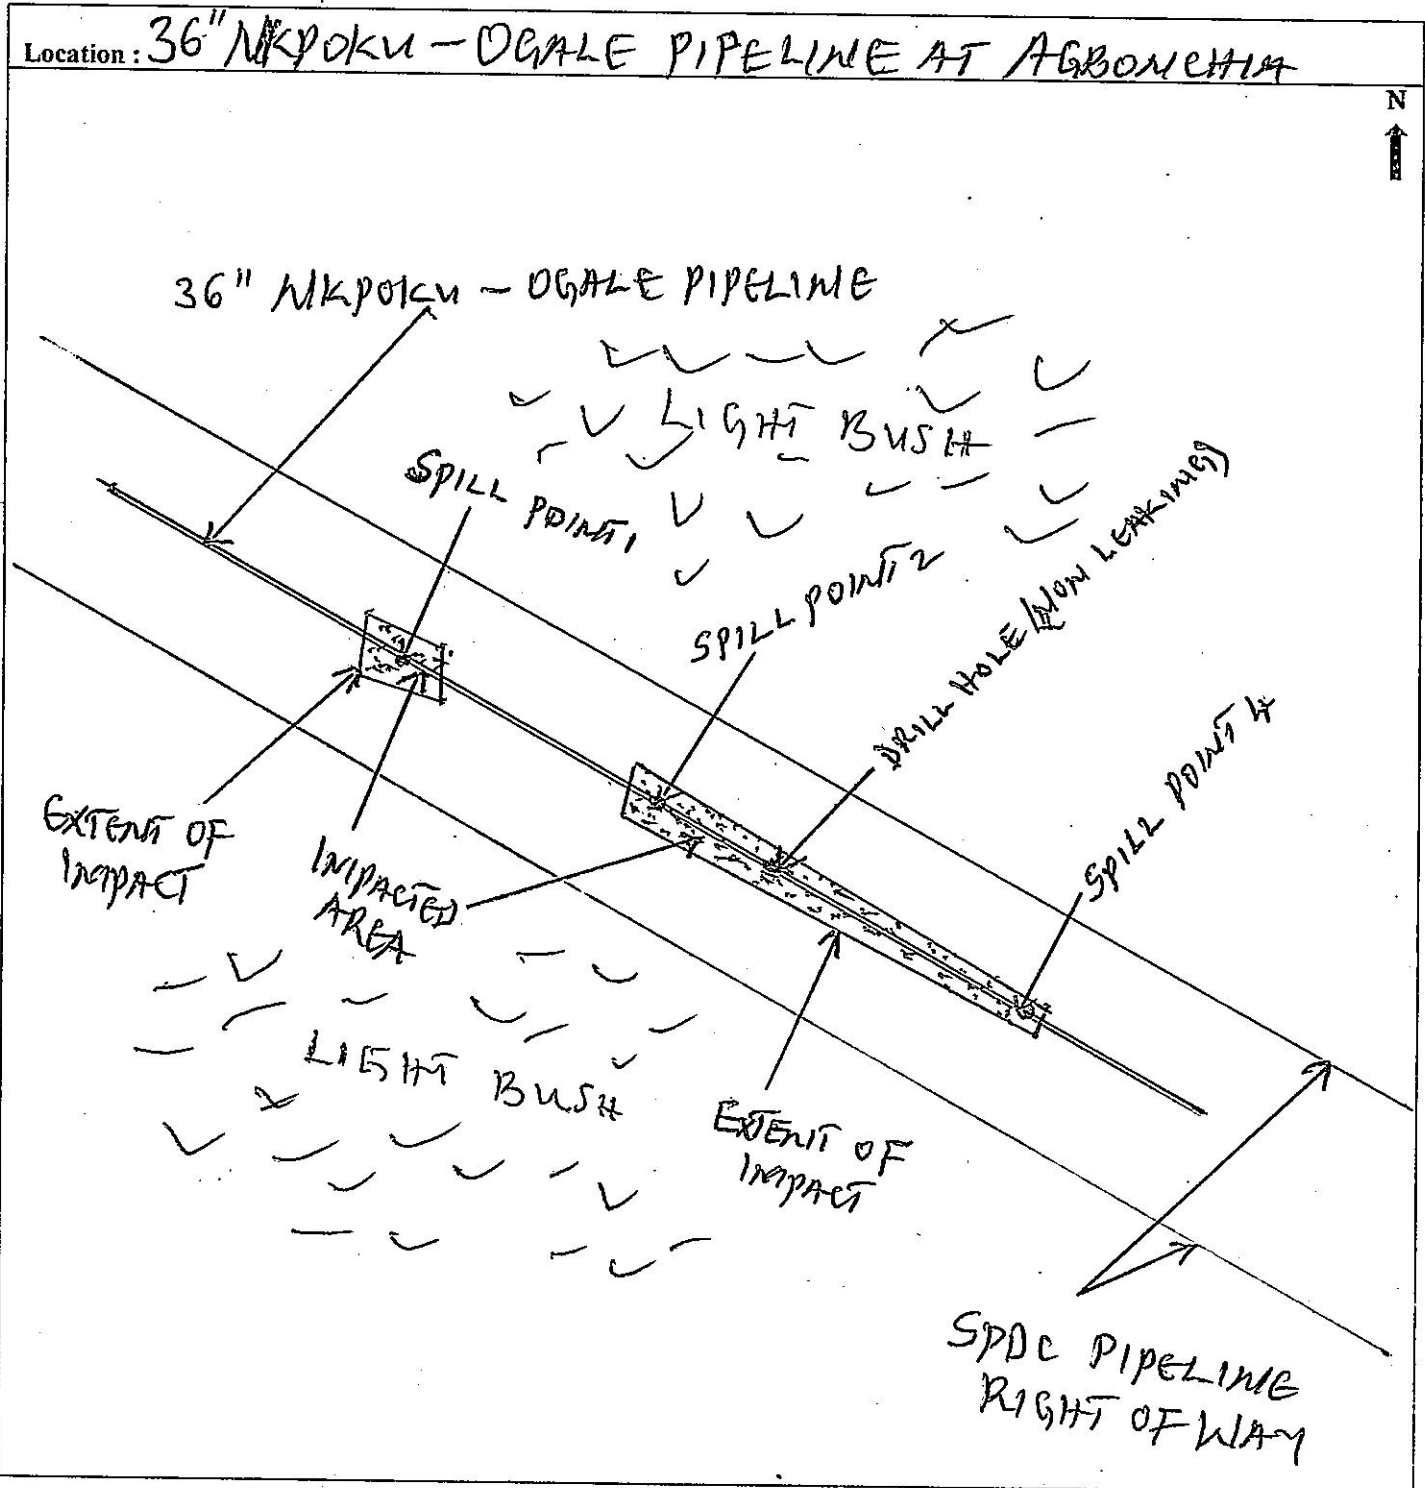 Location : 36" NKPOKU - OGALE PIPELINE AT AGBONCHIA
N
36" NKPOKU - OGALE PIPELINE
LIGHT BUSH
SPILL POINT 1
SPILL POINT 2
DRILL HOLE (NON LEAKING)
SPILL POINT 4
EXTENT OF
IMPACT
IMPACTED
AREA
LIGHT BUSH
EXTENT OF
IMPACT
SPDC PIPELINE
RIGHT OF WAY